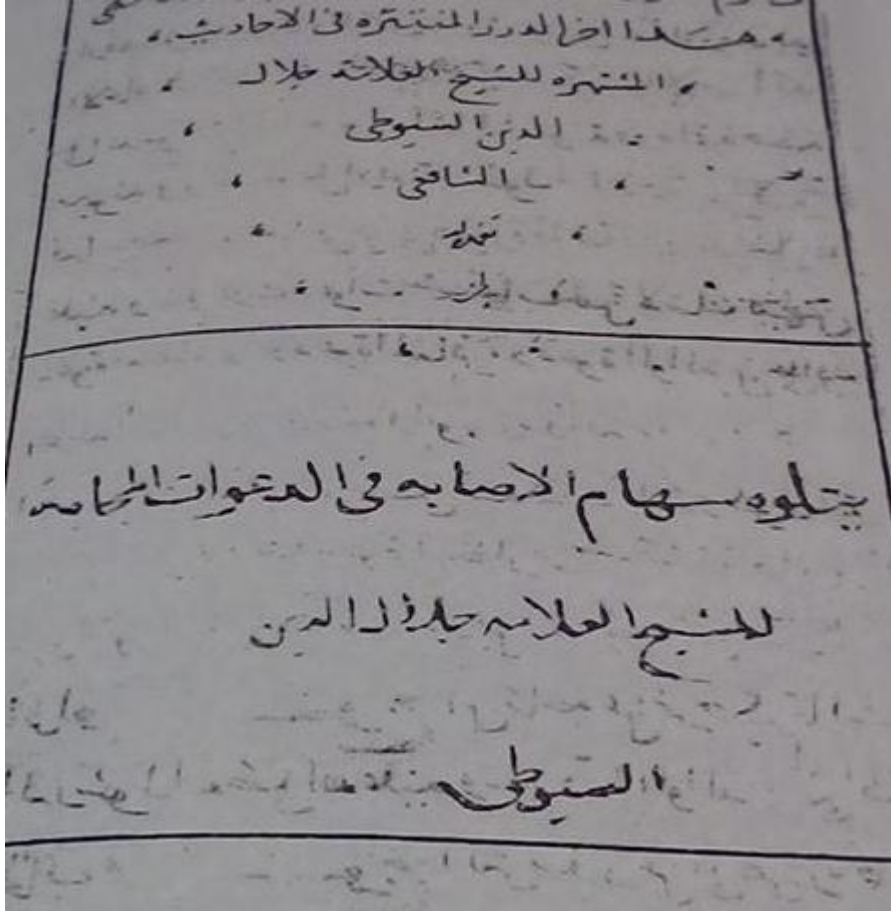 هذا اخر الدرر المنتثره فى الاحاديث
المشتهره للشيخ العلامة جلال
الدين السيوطى
الشافعى
تغمده
يتلوه سهام الاصابه فى الدعوات المجابه
للشيخ العلامه جلال الدين
السيوطى